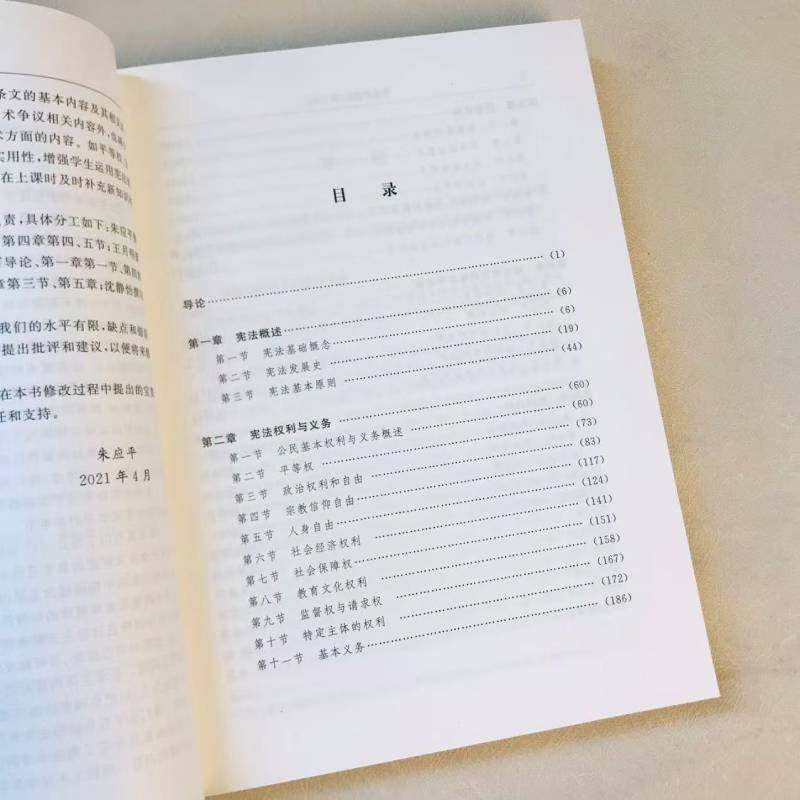 条文的基本内容及其相关
术争议相关内容外，
方面的内容。如平等权、
实用性，增强学生运用宪法
在上课时及时补充新知识
责，具体分工如下：朱应平
第四章第四、五节；王月明
导论、第一章第一节、第四
章第三节、第五章；沈静怡
我们的水平有限，缺点和
提出批评和建议，以便将来
在本书修改过程中提出的宝贵
任和支持。
朱应平
2021年4月
目 录
导论……(1)
第一章 宪法概述……(6)
第一节 宪法基础概念……(6)
第二节 宪法发展史……(19)
第三节 宪法基本原则……(44)
第二章 宪法权利与义务……(60)
第一节 公民基本权利与义务概述……(60)
第二节 平等权……(73)
第三节 政治权利和自由……(83)
第四节 宗教信仰自由……(117)
第五节 人身自由……(124)
第六节 社会经济权利……(141)
第七节 社会保障权……(151)
第八节 教育文化权利……(158)
第九节 监督权与请求权……(167)
第十节 特定主体的权利……(172)
第十一节 基本义务……(186)